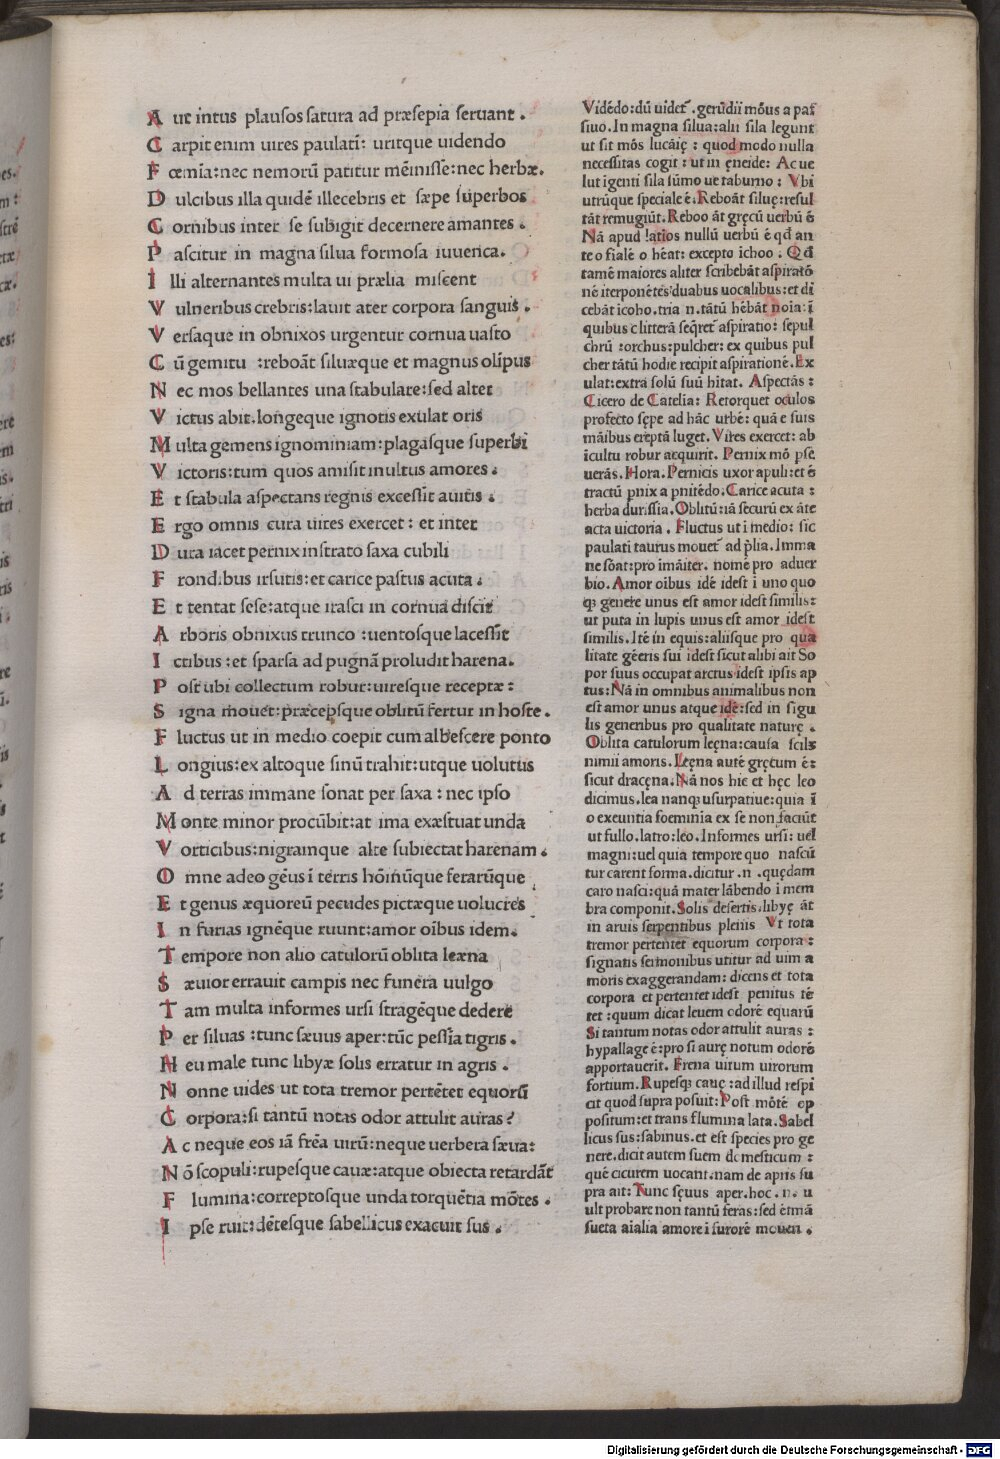 A ut intus plausos satura ad præsepia seruant .
C arpit enim uires paulatī: uritque uidendo
F œmīa:nec nemorū patitur mēinisse:nec herbæ.
D ulcibus illa quidē illecebris et sæpe superbos
C ornibus inter se subigit decernere amantes .
P ascitur in magna silua formosa iuuenca.
I lli alternantes multa ui prælia miscent
V ulneribus crebris:lauit ater corpora sanguis .
V ersaque in obnixos urgentur cornua uasto
C ū gemitu :reboāt siluæque et magnus olīpus
N ec mos bellantes una stabulare:sed alter
V ictus abit.longeque ignotis exulat oris
M ulta gemens ignominiam:plagasque superbi
V ictoris:tum quos amisit inultus amores .
E t stabula aspectans regnis excessit auitis .
E rgo omnis cura uires exercet : et inter
D ura iacet pernix instrato saxa cubili
F rondibus irsutis:et carice pastus acuta .
E t tentat sese:atque irasci in cornua discit
A rboris obnixus trunco :uentosque lacessit
I ctibus :et sparsa ad pugnā proludit harena.
P ost ubi collectum robur:uiresque receptæ :
S igna mouet:præcepsque oblitū fertur in hoste .
F luctus ut in medio coepit cum albescere ponto
L ongius:ex altoque sinū trahit:utque uolutus
A d terras immane sonat per saxa : nec ipso
M onte minor procūbit:at ima exæstuat unda
V orticibus:nigramque alte subiectat harenam .
O mne adeo gēus ī terris hōinūque ferarūque
E t genus æquoreū pecudes pictæque uolucres
I n furias ignēque ruunt:amor oībus idem.
T empore non alio catulorū oblita leæna
S æuior errauit campis nec funera uulgo
T am multa informes ursi stragēque dedere
P er siluas :tunc sæuus aper:tūc pessīa tigris .
H eu male tunc libyæ solis erratur in agris .
N onne uides ut tota tremor pertētet equorū
C orpora:si tantū notas odor attulit auras ?
A c neque eos iā frēa uirū:neque uerbera sæua:
N ō scopuli:rupesque cauæ:atque obiecta retardāt
F lumina:correptosque unda torquētia mōtes .
I pse ruit:dētesque sabellicus exacuit sus .
Vidēdo:dū uidet .gerūdii mōus a pas
siuo.In magna silua:alii sila legunt
ut sit mōs lucāię : quod modo nulla
necessitas cogit : ut in ęneide: Ac ue
lut igenti sila sūmo ue taburno : Vbi
utrūque speciale ē.Reboāt siluę:resul
tāt remugiūt.Reboo āt gręcū uerbū ē
Nā apud latios nullū uerbū ē qđ an
te o fiale o hēat: excepto ichoo . Qđ
tamē maiores aliter scribebāt aspiratō
nē iterponētes duabus uocalibus:et di
cebāt icoho.tria n.tātū hēbāt noia:ī
quibus c litterā seqret aspiratio: sepul
chrū :orchus:pulcher: ex quibus pul
cher tātū hodie recipit aspirationē.Ex
ulat:extra solū suū hītat. Aspectās :
Cicero de Catelia: Retorquet oculos
profecto sępe ad hāc urbē: quā e suis
māibus ereptā luget.Vires exercet: ab
icultu robur acquirit. Pernix mō pse
uerās.Hora.Pernicis uxor apuli:et ē
tractū pnix a pnitēdo.Carice acuta :
herba durissia.Oblitū:iā securū ex āte
acta uictoria . Fluctus ut i medio: sic
paulati taurus mouet ad plia.Imma
ne sōat:pro imāiter. nomē pro aduer
bio.Amor oibus idē idest i uno quo
q; genere unus est amor idest similis:
ut puta in lupis unus est amor idest
similis.Itē in equis:aliisque pro qua
litate gēeris sui idest sicut alibi ait So
por suus occupat artus idest ipsis ap
tus:Nā in omnibus animalibus non
est amor unus atque idē:sed in sigu
lis generibus pro qualitate naturę .
Oblita catulorum leęna:causa scils
nimii amoris.Leęna autē gręcum ē:
sicut dracęna.Nā nos hic et hęc leo
dicimus.lea nanq; usurpatiue:quia ī
o exeuntia foeminia ex se non faciūt
ut fullo.latro:leo.Informes ursi: uel
magni:uel quia tempore quo nascū
tur carent forma.dicitur .n .quędam
caro nasci:quā mater lābendo i mem
bra componit.Solis desertis.libyę āt
in aruis serpentibus plenis Vt tota
tremor pertentet equorum corpora :
signatis sermonibus utitur ad uim a
moris exaggerandam: dicens et tota
corpora et pertentet idest penitus tē
tet :quum dicat leuem odorē equarū
Si tantum notas odor attulit auras :
hypallage ē:pro si aurę notum odorē
apportauerit. Frena uirum uirorum
fortium.Rupesq; cauę :ad illud respi
cit quod supra posuit:Post mōtē op
positum:et trans flumina lata.Sabel
licus sus:sabinus.et est species pro ge
nere.dicit autem suem domesticum :
quē cicurem uocant.nam de apris su
pra ait: Tunc sęuus aper.hoc .n. u
ult probare non tantū feras:sed etmā
sueta aialia amore i furorē mouen .
Digitalisierung gefördert durch die Deutsche Forschungsgemeinschaft - DFG